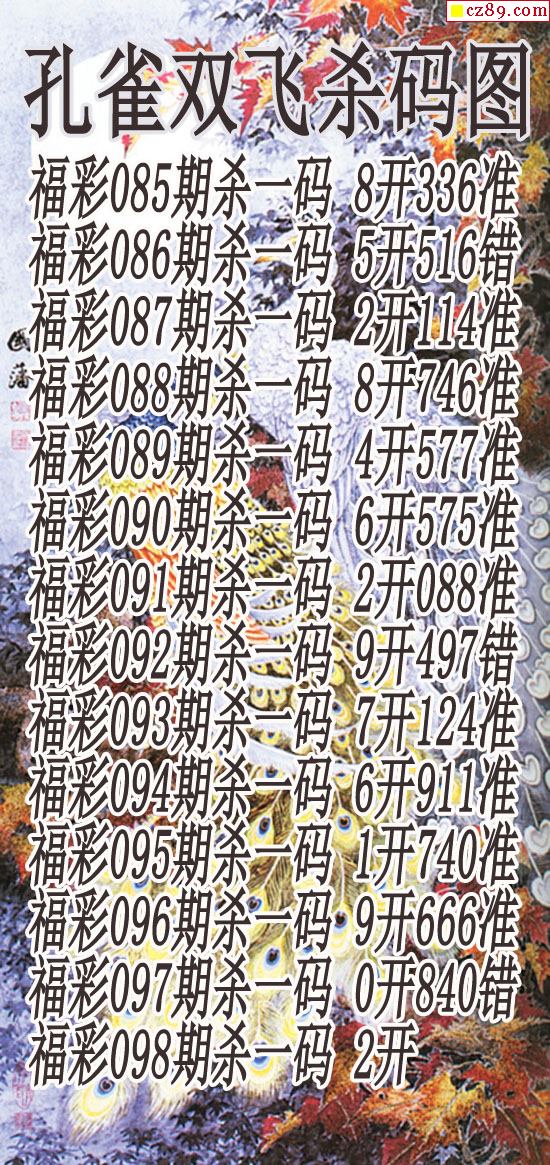 cz89.com
孔雀双飞杀码图
福彩085期杀一码 8开336准
福彩086期杀一码 5开516错
福彩087期杀一码 2开114准
福彩088期杀一码 8开746准
福彩089期杀一码 4开577准
福彩090期杀一码 6开575准
福彩091期杀一码 2开088准
福彩092期杀一码 9开497错
福彩093期杀一码 7开124准
福彩094期杀一码 6开911准
福彩095期杀一码 1开740准
福彩096期杀一码 9开666准
福彩097期杀一码 0开840错
福彩098期杀一码 2开